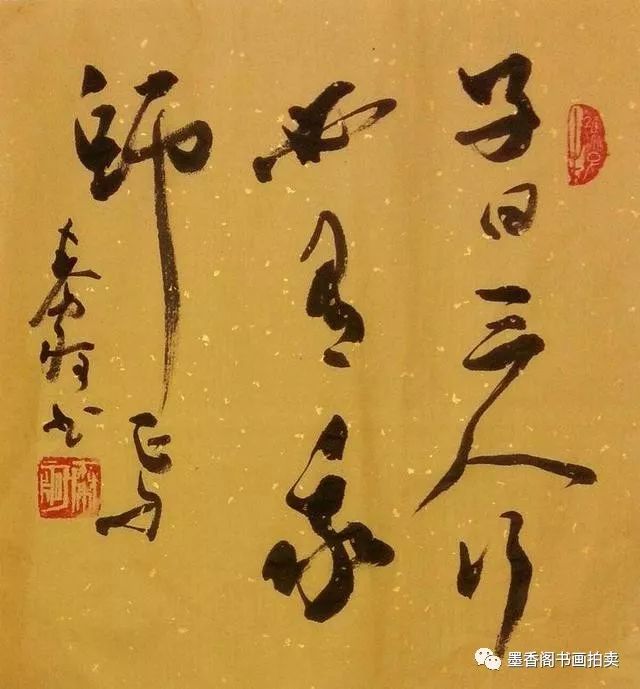 子曰三人行
必有我
師焉
书
墨香阁书画拍卖